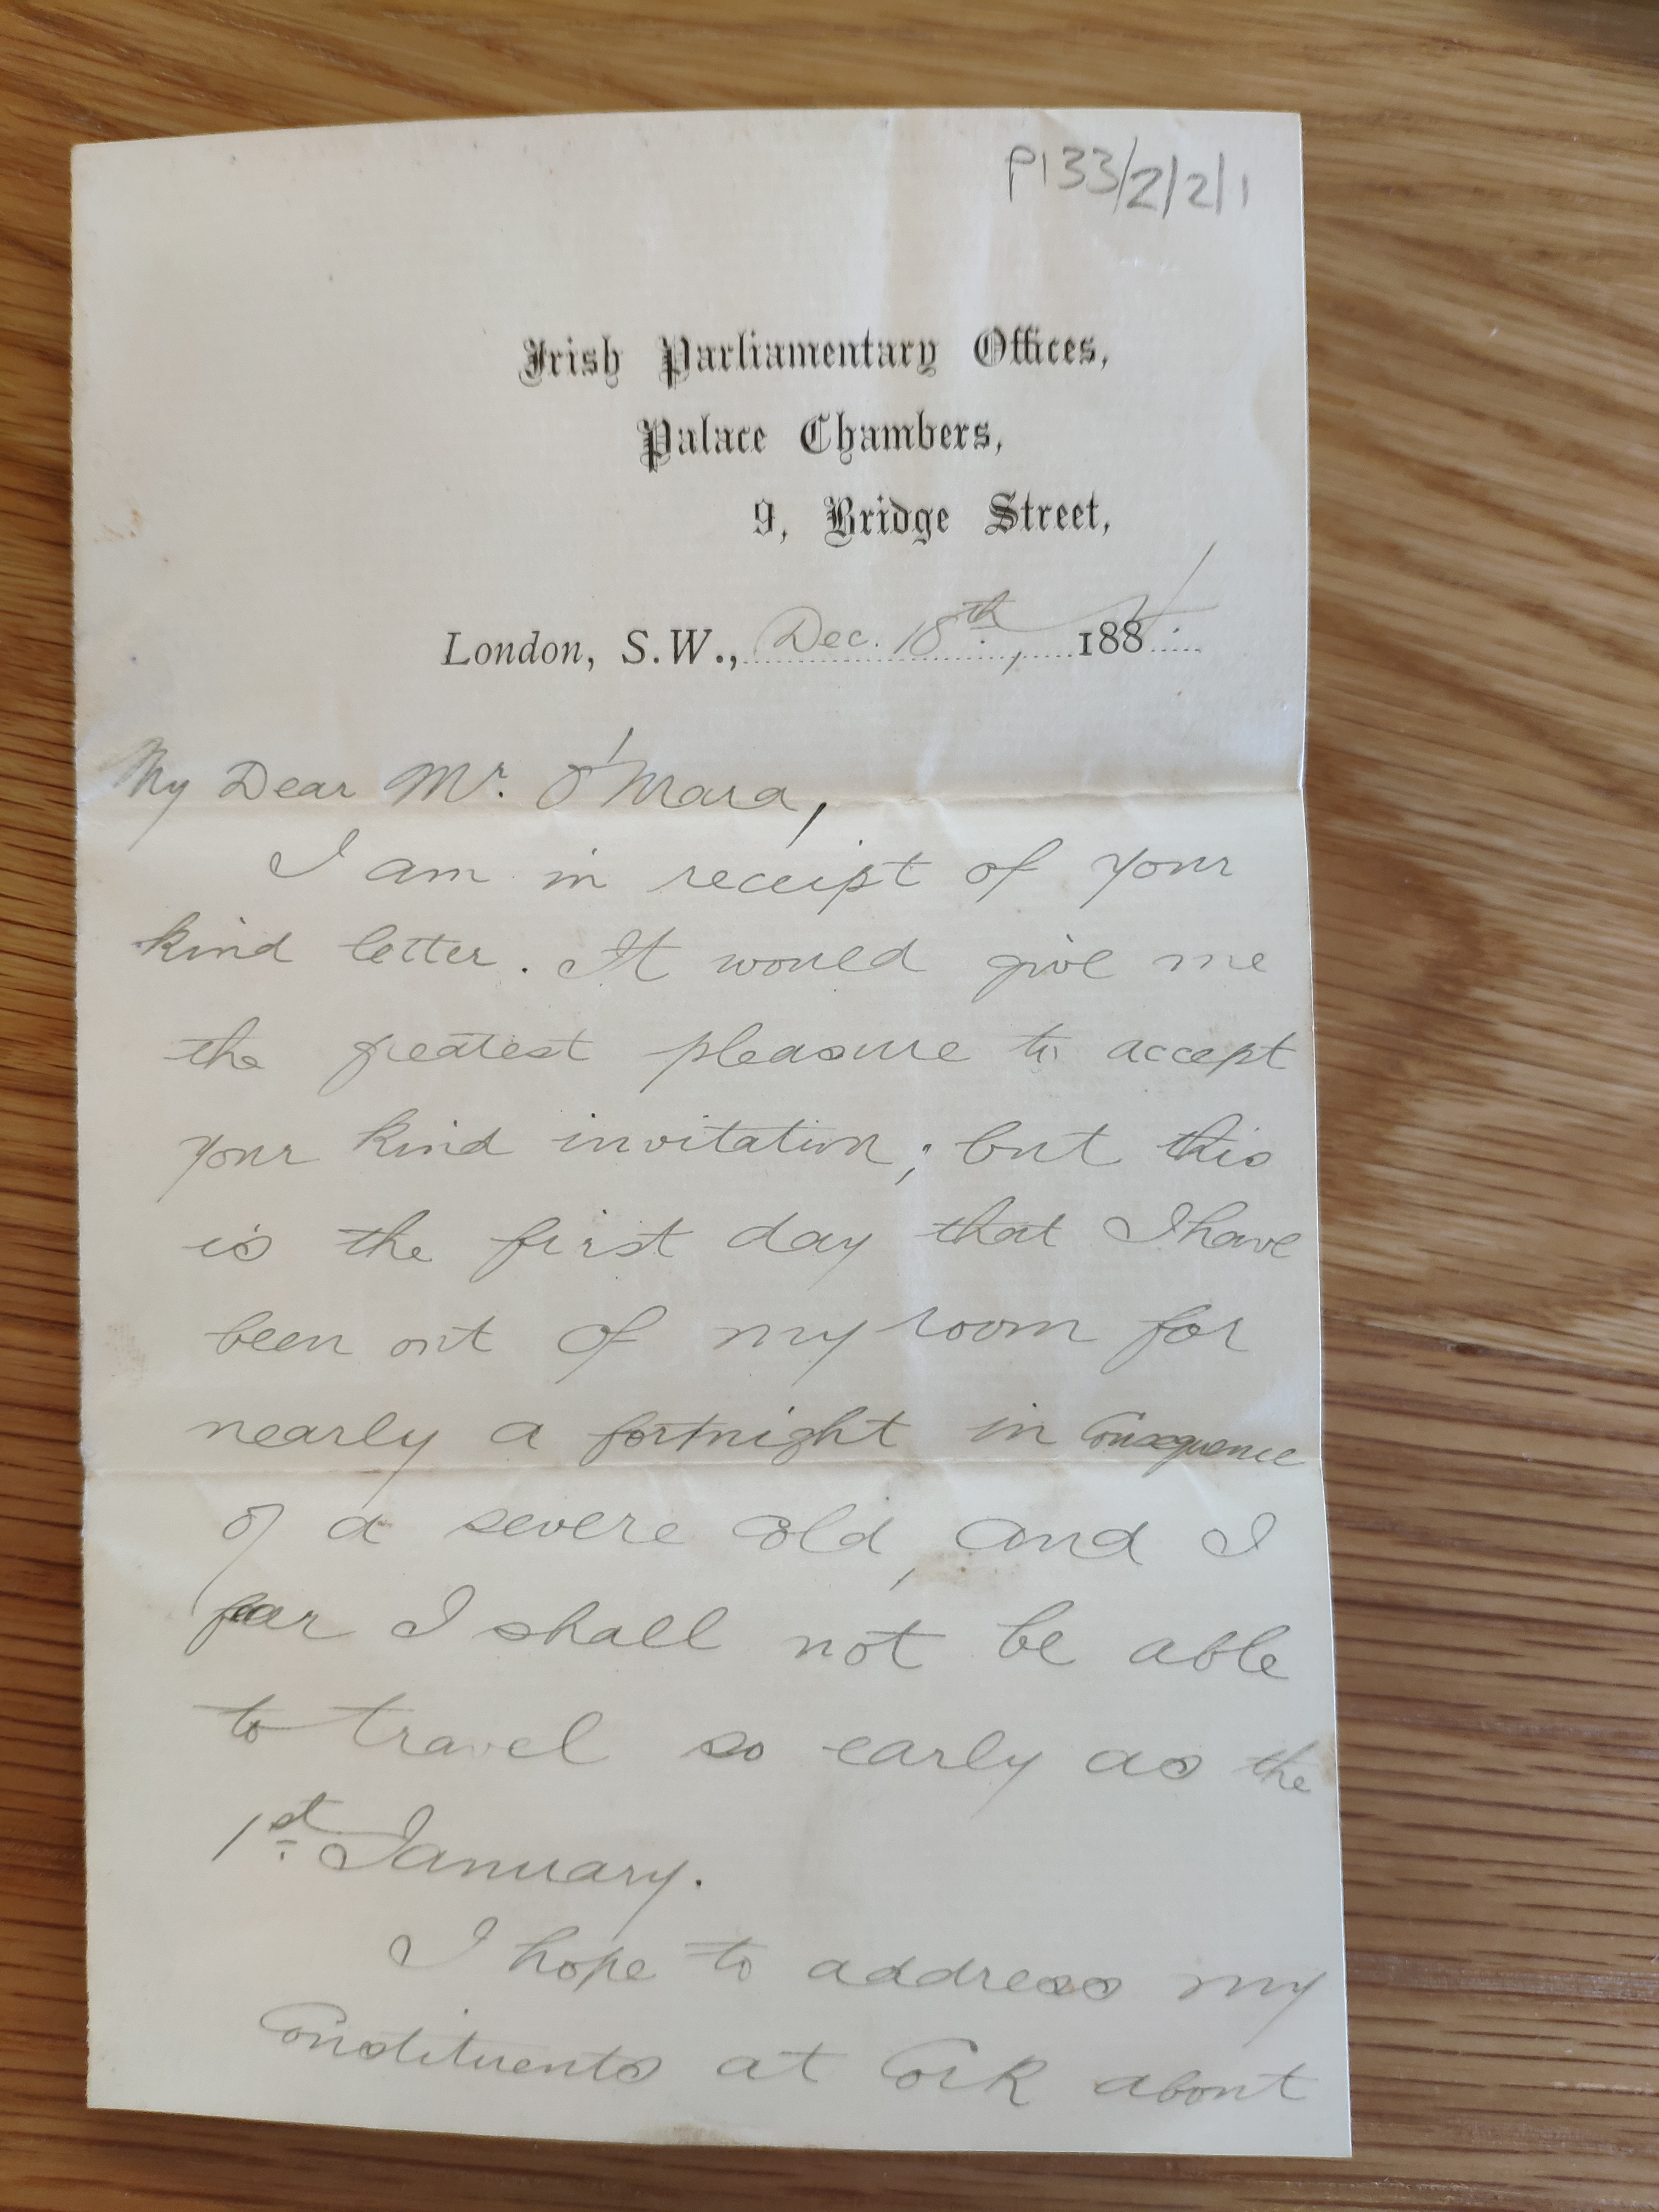 P133/2/2/1
Irish Parliamentary Offices,
Palace Chambers,
9, Bridge Street,
London, S.W., Dec. 18th, 1884
My Dear Mr. O'Mara,
I am in receipt of your
kind letter. It would give me
the greatest pleasure to accept
your kind invitation; but this
is the first day that I have
been out of my room for
nearly a fortnight in Consequence
of a severe Cold, and I
fear I shall not be able
to travel so early as the
1st January.
I hope to address my
Constituents at Cork about